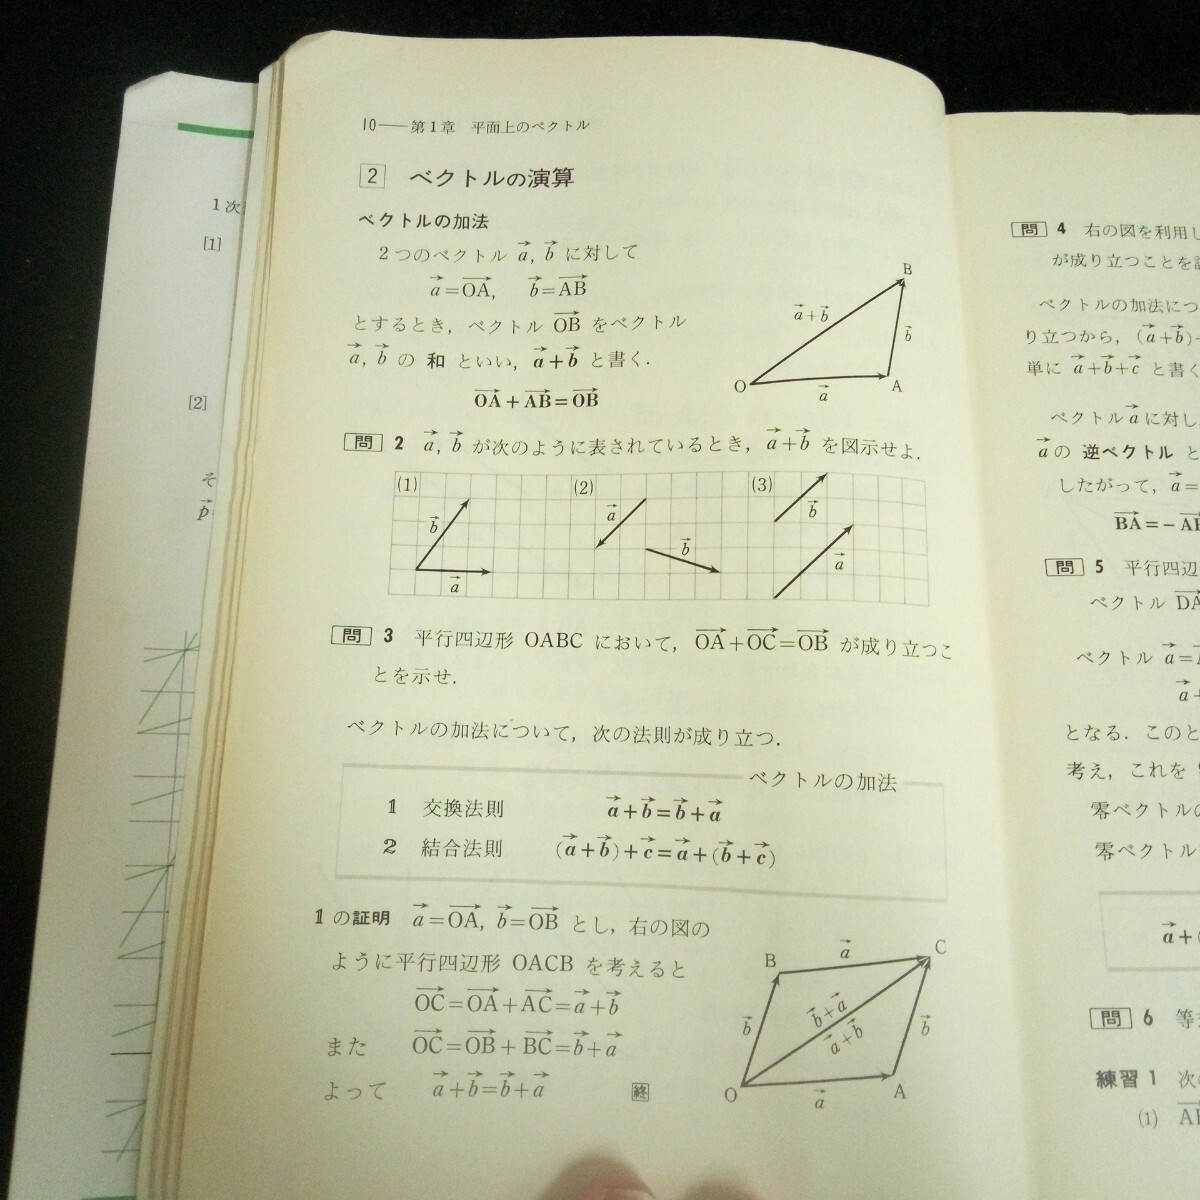 10——第1章 平面上のベクトル
2 ベクトルの演算
ベクトルの加法
2つのベクトル $\vec{a}$, $\vec{b}$ に対して
$\vec{a}=\overrightarrow{OA}$, $\vec{b}=\overrightarrow{AB}$
とするとき, ベクトル $\overrightarrow{OB}$ をベクトル
$\vec{a}$, $\vec{b}$ の 和 といい, $\vec{a}+\vec{b}$ と書く.
$\overrightarrow{OA}+\overrightarrow{AB}=\overrightarrow{OB}$
B
$\vec{a}+\vec{b}$
$\vec{b}$
O
$\vec{a}$
A
問 2 $\vec{a}$, $\vec{b}$ が次のように表されているとき, $\vec{a}+\vec{b}$ を図示せよ.
(1) $\vec{b}$ $\vec{a}$
(2) $\vec{a}$ $\vec{b}$
(3) $\vec{b}$ $\vec{a}$
問 3 平行四辺形 OABC において, $\overrightarrow{OA}+\overrightarrow{OC}=\overrightarrow{OB}$ が成り立つこ
とを示せ.
ベクトルの加法について, 次の法則が成り立つ.
ベクトルの加法
1 交換法則 $\vec{a}+\vec{b}=\vec{b}+\vec{a}$
2 結合法則 $(\vec{a}+\vec{b})+\vec{c}=\vec{a}+(\vec{b}+\vec{c})$
1 の証明 $\vec{a}=\overrightarrow{OA}$, $\vec{b}=\overrightarrow{OB}$ とし, 右の図の
ように平行四辺形 OACB を考えると
$\overrightarrow{OC}=\overrightarrow{OA}+\overrightarrow{AC}=\vec{a}+\vec{b}$
また $\overrightarrow{OC}=\overrightarrow{OB}+\overrightarrow{BC}=\vec{b}+\vec{a}$
よって $\vec{a}+\vec{b}=\vec{b}+\vec{a}$ 終
B
$\vec{a}$
C
$\vec{b}$
$\vec{b}+\vec{a}$
$\vec{a}+\vec{b}$
$\vec{b}$
O
$\vec{a}$
A
1次
[1]
[2]
そ
$\vec{p}$
問 4 右の図を利用し
が成り立つことを
ベクトルの加法につ
り立つから, $(\vec{a}+\vec{b})$
単に $\vec{a}+\vec{b}+\vec{c}$ と書く
ベクトル $\vec{a}$ に対し
$\vec{a}$ の 逆ベクトル と
したがって, $\vec{a}=$
$\overrightarrow{BA}=-$
問 5 平行四辺
ベクトル $\overrightarrow{DA}$
ベクトル $\vec{a}=$
$\vec{a}+$
となる. このと
考え, これを
零ベクトルの
零ベクトル
$\vec{a}+($
問 6 等
練習 1 次
(1)